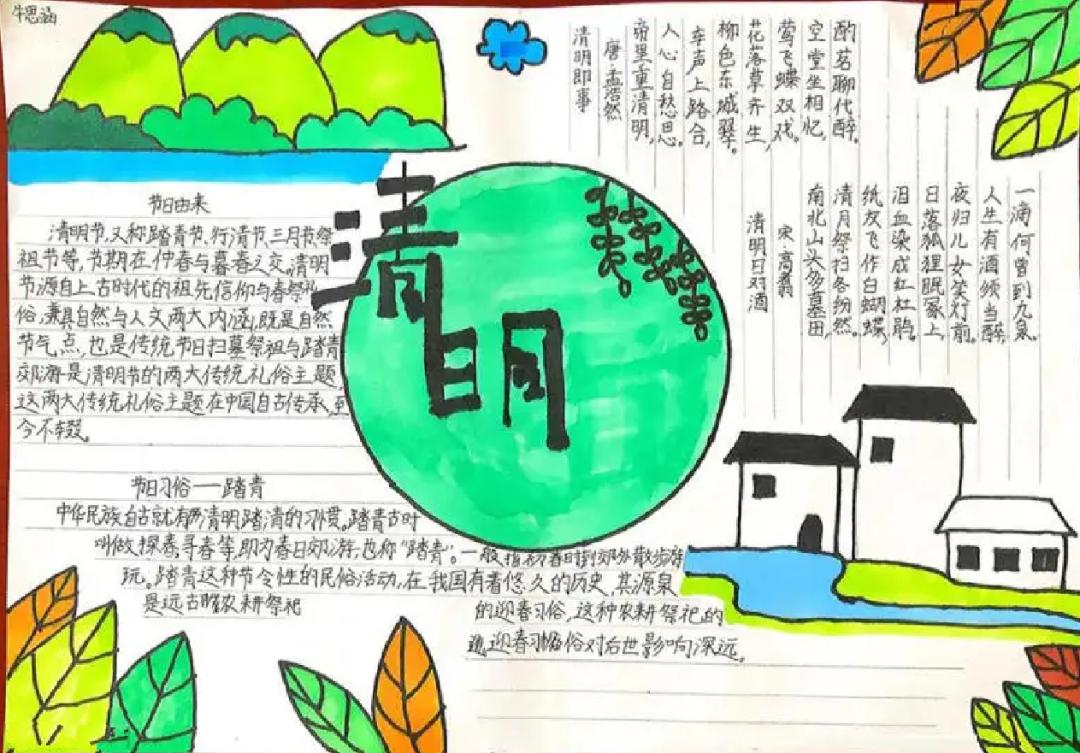 牛思涵
清明
节日由来
清明节,又称踏青节、行清节、三月节、祭
祖节等,节期在仲春与暮春之交。清明
节源自上古时代的祖先信仰与春祭礼
俗,兼具自然与人文两大内涵,既是自然
节气点,也是传统节日扫墓祭祖与踏青
郊游是清明节的两大传统礼俗主题,
这两大传统礼俗主题在中国自古传承,至
今不辍。
节日习俗——踏青
中华民族自古就有清明踏清的习惯。踏青古时
叫做探春、寻春等,即为春日郊游,也称“踏青”。一般指初春时到郊外散步游
玩。踏青这种节令性的民俗活动,在我国有着悠久的历史,其源泉
是远古农耕祭祀
的迎春习俗,这种农耕祭祀的
迎春习俗对后世影响深远。
清明即事
唐·孟浩然
帝里重清明,
人心自愁思。
车声上路合,
柳色东城翠。
花落草齐生,
莺飞蝶双戏。
空堂坐相忆,
酌茗聊代醉。
清明日对酒
宋·高翥
南北山头多墓田,
清月祭扫各纷然。
纸灰飞作白蝴蝶,
泪血染成红杜鹃。
日落狐狸眠冢上,
夜归儿女笑灯前。
人生有酒须当醉,
一滴何曾到九泉。